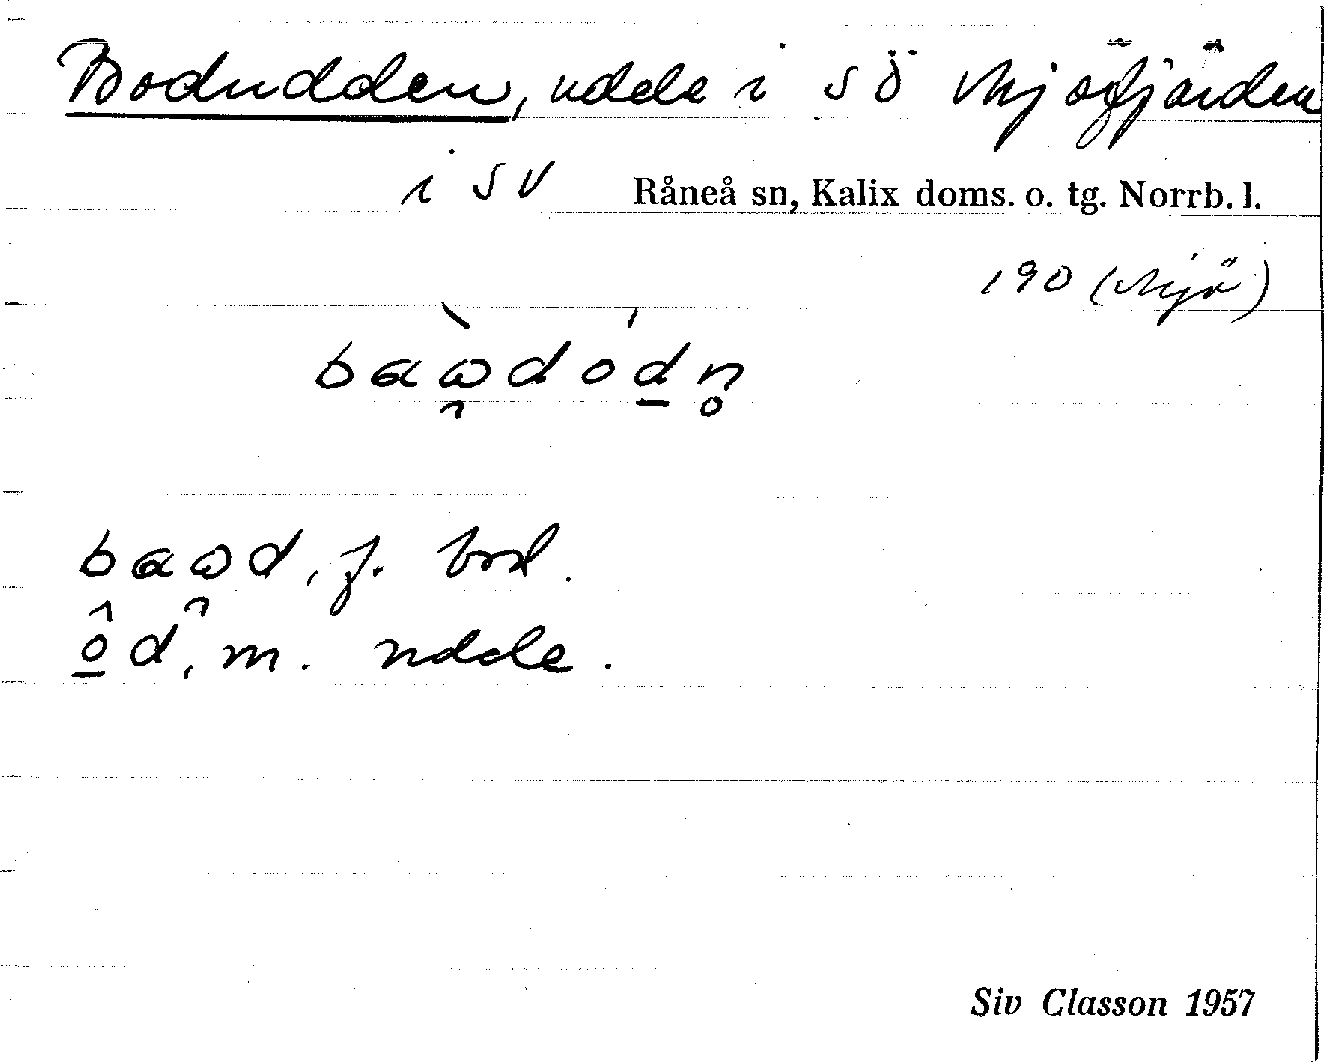 Bodudden, udde i SÖ Mjöfjärden
i SV Råneå sn, Kalix doms. o. tg. Norrb. l.
190 (Mjö)
baɷ̯̀dód̲n̥
baɷ̯d, f. bod.
ô̲d, m. udde.
Siv Classon 1957